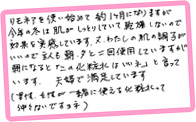 リモネアを使い始めて約1ヶ月になりますが
今年の冬は肌がしっとりしていて乾燥しないので
効果を実感しています。又、わたしの肌の調子が
いいので主人も朝、夕と二回使用していますが
朝になると「この化粧水はいいネ」と言って
います。夫婦で満足しています
(男性、女性が一緒に使える化粧水って
仲々ないですョネ)